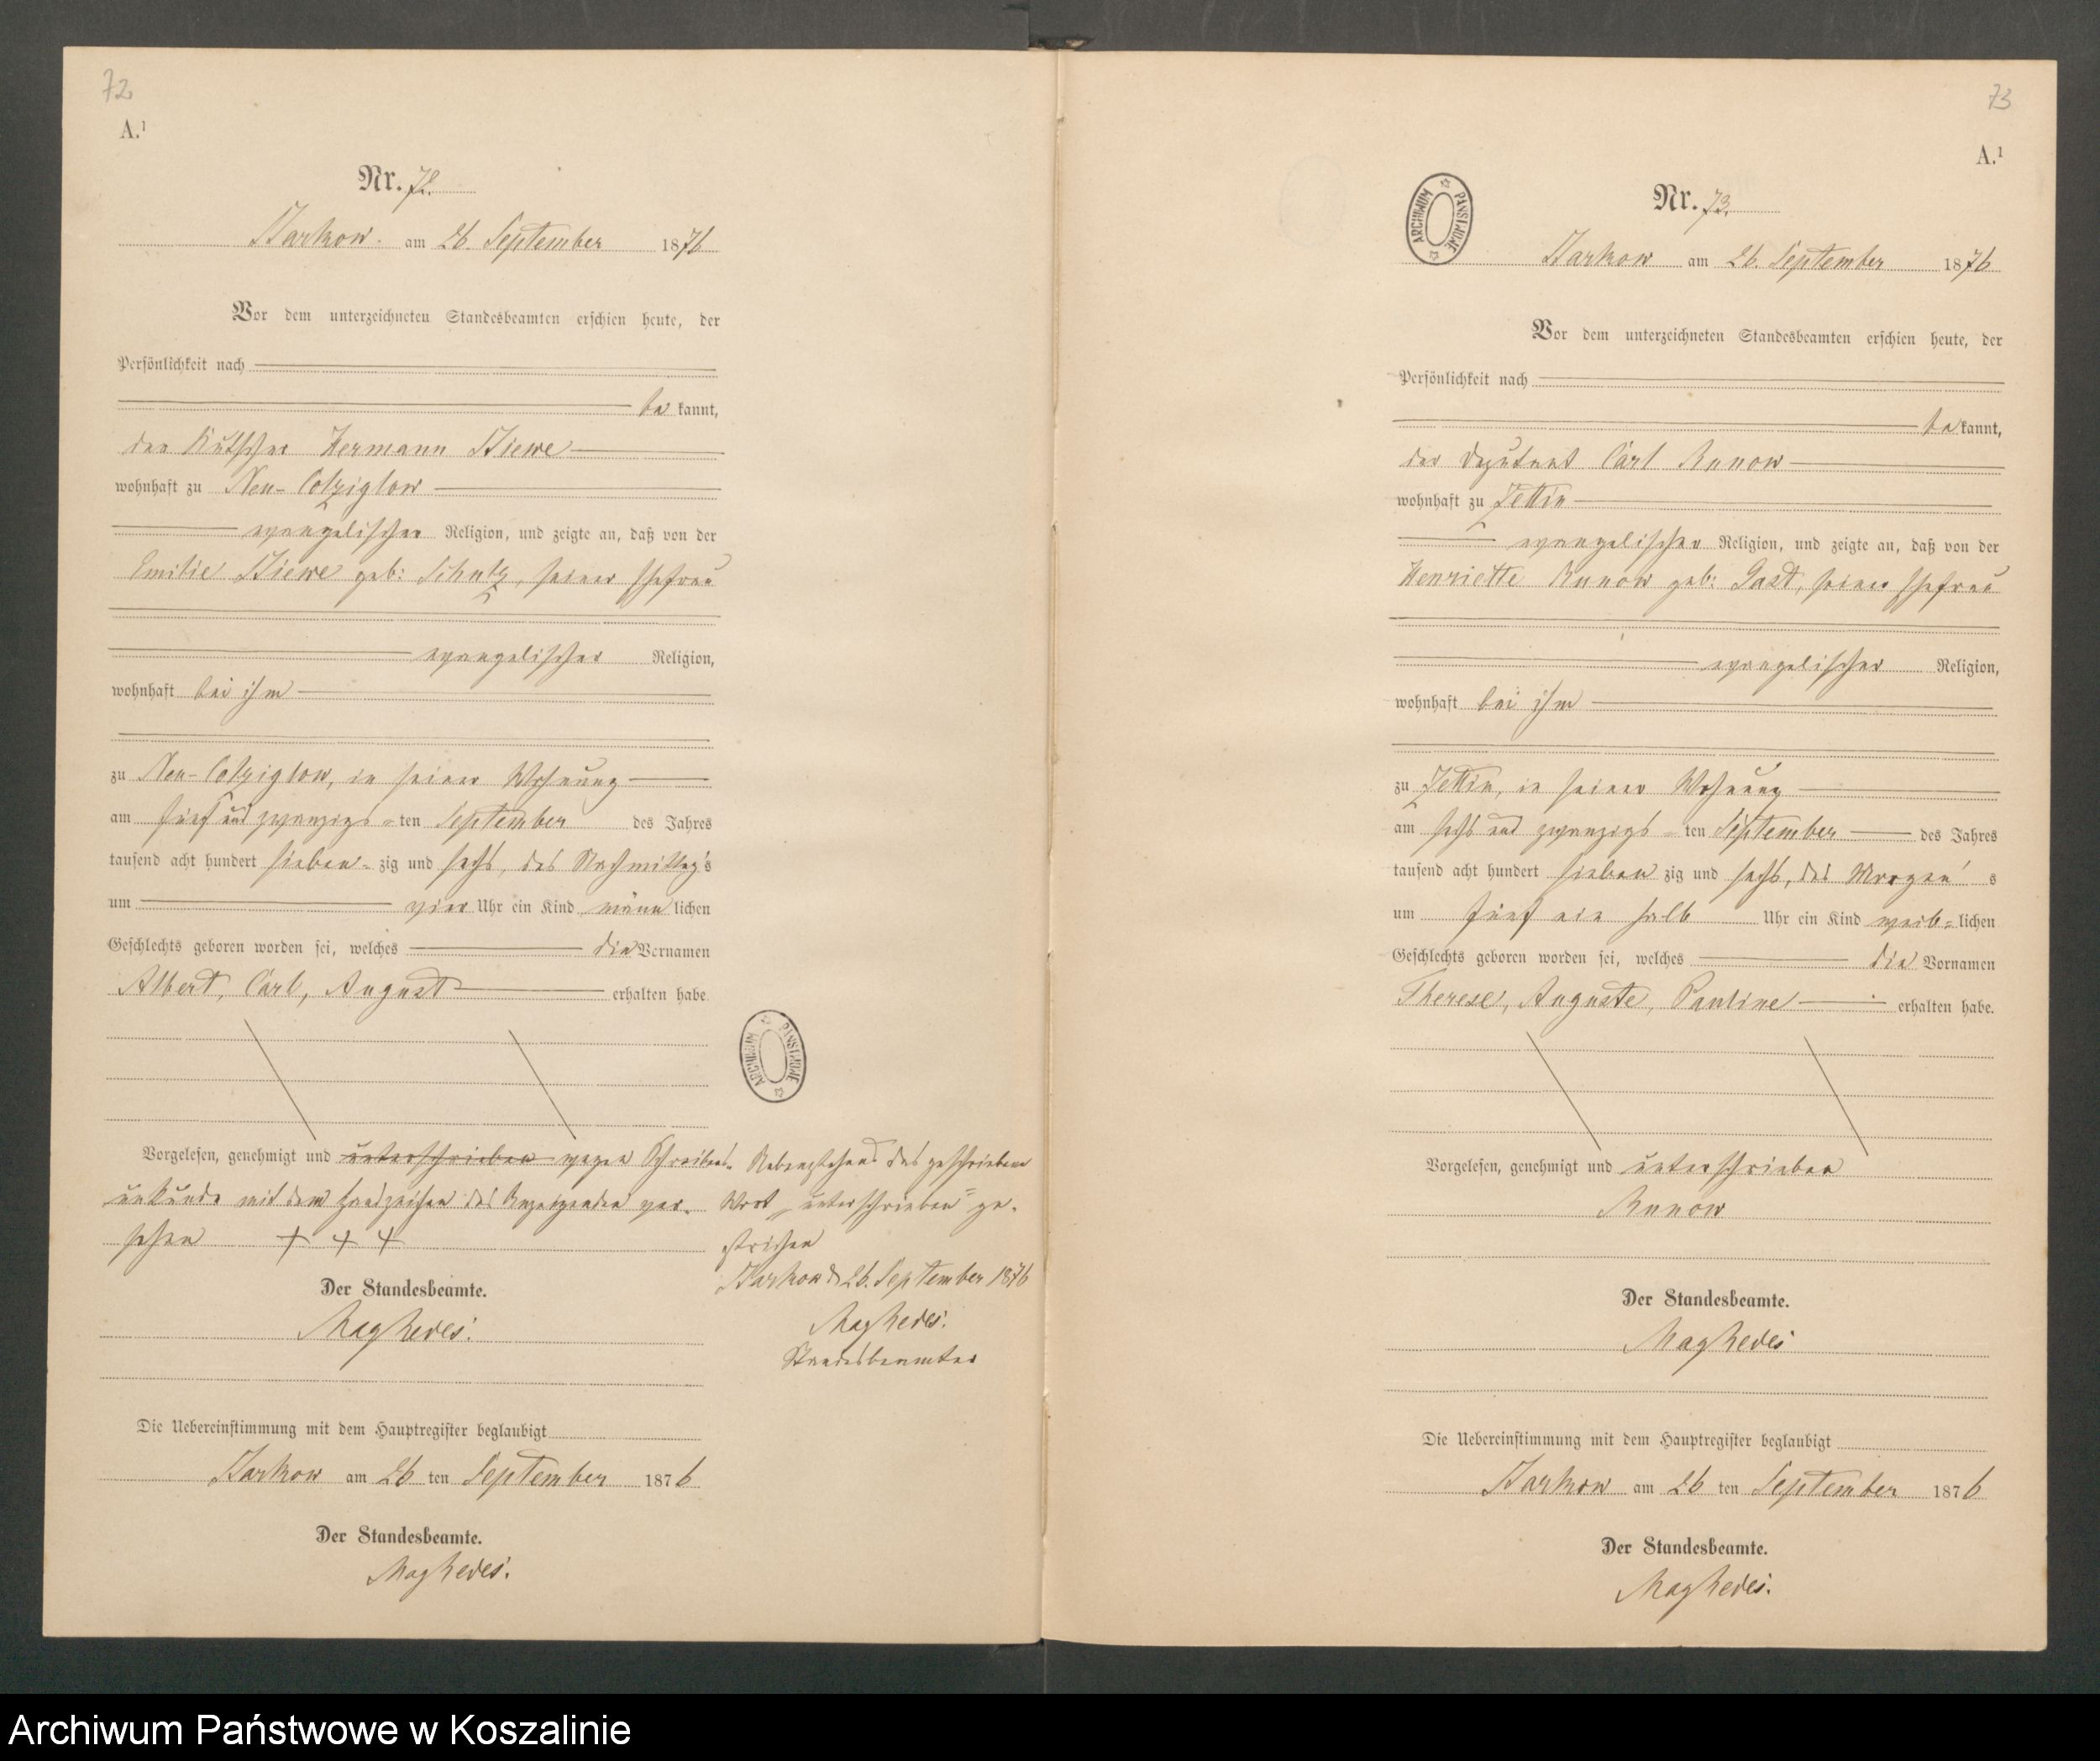 72
A.¹
Nr. 72.
Barkow. am 26. September 1876
Vor dem unterzeichneten Standesbeamten erschien heute, der
Persönlichkeit nach
be kannt,
der Kutscher Hermann
wohnhaft zu Neu-Colziglow
evangelischer Religion, und zeigte an, daß von der
Emilie geb: Schulz, seiner Ehefrau
evangelischer Religion,
wohnhaft bei ihm
zu Neu-Colziglow, in seiner Wohnung
am fünf und zwanzigs-ten September des Jahres
tausend acht hundert sieben-zig und sechs, des Nachmittag's
um vier Uhr ein Kind männ lichen
Geschlechts geboren worden sei, welches die Vornamen
Albert, Carl, August erhalten habe.
Vorgelesen, genehmigt und unterschrieben wegen Schreibens-
unkunde mit dem Handzeichen des Anzeigenden ver-
sehen + + +
Der Standesbeamte.
Die Uebereinstimmung mit dem Hauptregister beglaubigt
Barkow am 26 ten September 1876
Der Standesbeamte.
Nebenstehend das geschriebene
Wort „unterschrieben" ge-
strichen
Barkow d 26. September 1876
Standesbeamter
ARCHIWUM PAŃSTWOWE
73
A.¹
ARCHIWUM PAŃSTWOWE
Nr. 73.
Barkow am 26. September 1876
Vor dem unterzeichneten Standesbeamten erschien heute, der
Persönlichkeit nach
be kannt,
der Deputant Carl Runow
wohnhaft zu Zettin
evangelischer Religion, und zeigte an, daß von der
Henriette Runow geb: Gast, seiner Ehefrau
evangelischer Religion,
wohnhaft bei ihm
zu Zettin, in seiner Wohnung
am sechs und zwanzigs-ten September des Jahres
tausend acht hundert sieben zig und sechs, des Morgen's
um fünf ein halb Uhr ein Kind weib-lichen
Geschlechts geboren worden sei, welches die Vornamen
Therese, Auguste, Pauline erhalten habe.
Vorgelesen, genehmigt und unterschrieben
Runow
Der Standesbeamte.
Die Uebereinstimmung mit dem Hauptregister beglaubigt
Barkow am 26 ten September 1876
Der Standesbeamte.
Archiwum Państwowe w Koszalinie